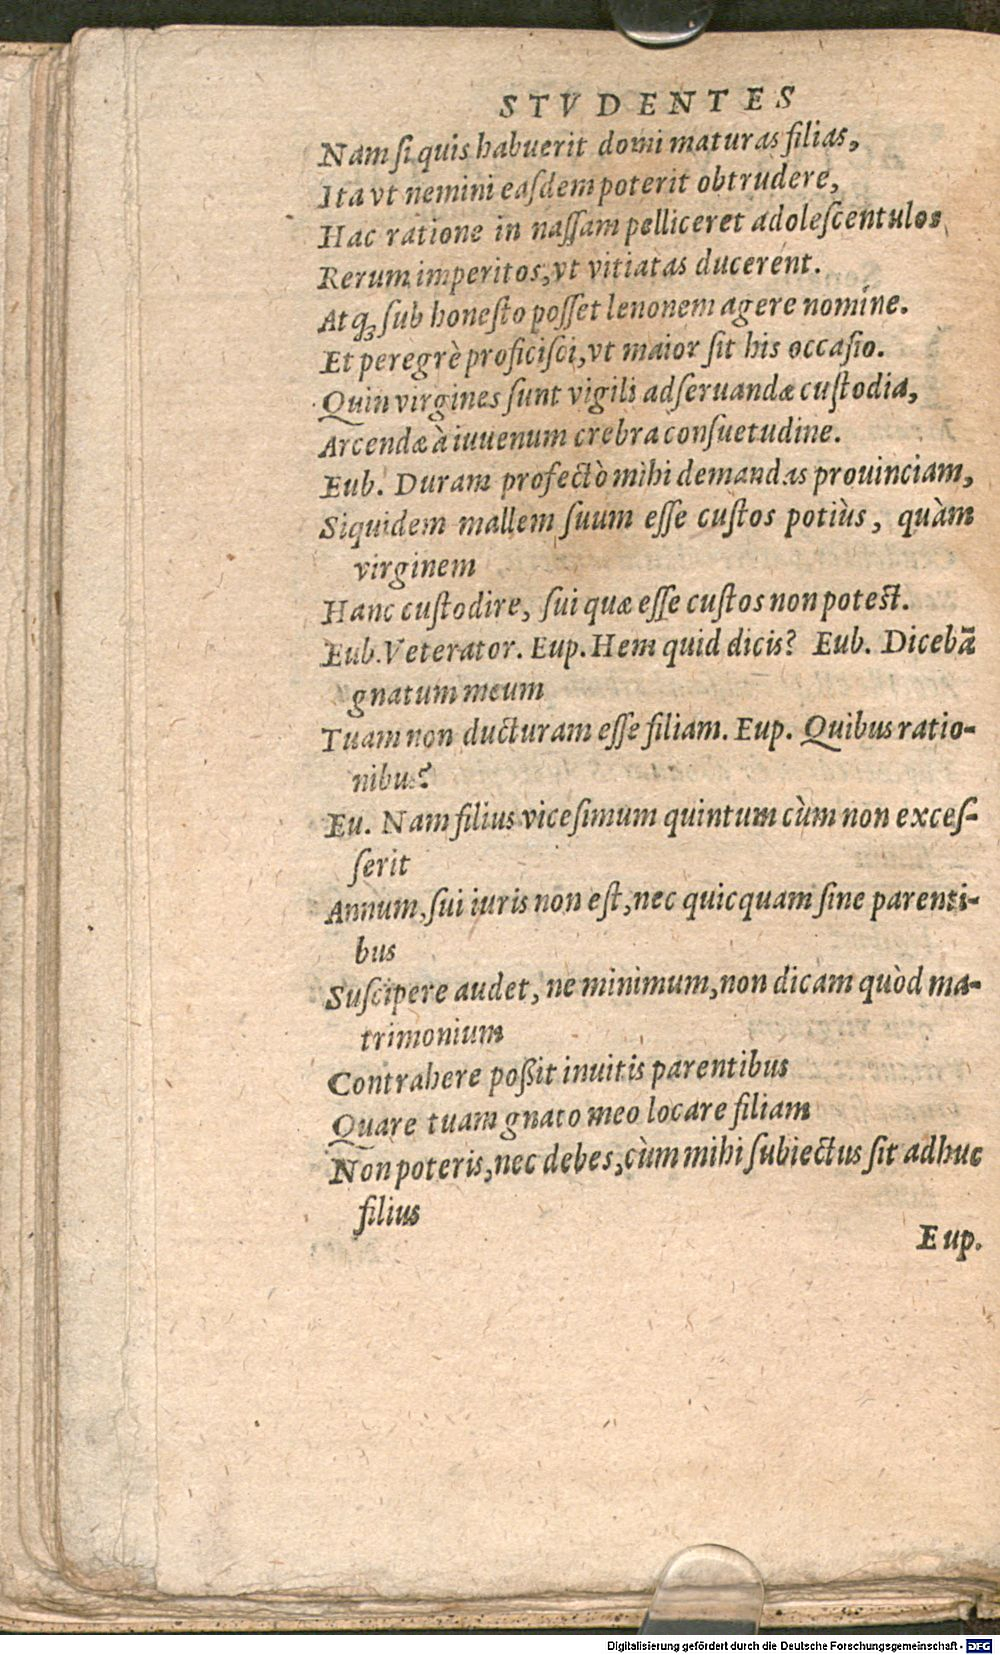 STVDENTES
Nam ſi quis habuerit domi maturas filias,
Ita vt nemini eaſdem poterit obtrudere,
Hac ratione in naſſam pelliceret adoleſcentulos
Rerum imperitos, vt vitiatas ducerent.
Atq́ꝫ ſub honeſto poſſet lenonem agere nomine.
Et peregrè proficiſci, vt maior ſit his occaſio.
Quin virgines ſunt vigili adſeruandæ cuſtodia,
Arcendæ à iuuenum crebra conſuetudine.
Eub. Duram profectò mihi demandas prouinciam,
Siquidem mallem ſuum eſſe cuſtos potiùs, quàm
virginem
Hanc cuſtodire, ſui quæ eſſe cuſtos non poteſt.
Eub. Veterator. Eup. Hem quid dicis? Eub. Dicebā
gnatum meum
Tuam non ducturam eſſe filiam. Eup. Quibus ratio-
nibus?
Eu. Nam filius viceſimum quintum cùm non exceſ-
ſerit
Annum, ſui iuris non eſt, nec quicquam ſine parenti-
bus
Suſcipere audet, ne minimum, non dicam quòd ma-
trimonium
Contrahere poßit inuitis parentibus
Quare tuam gnato meo locare filiam
Non poteris, nec debes, cùm mihi ſubiectus ſit adhuc
filius
Eup.
Digitalisierung gefördert durch die Deutsche Forschungsgemeinschaft - DFG